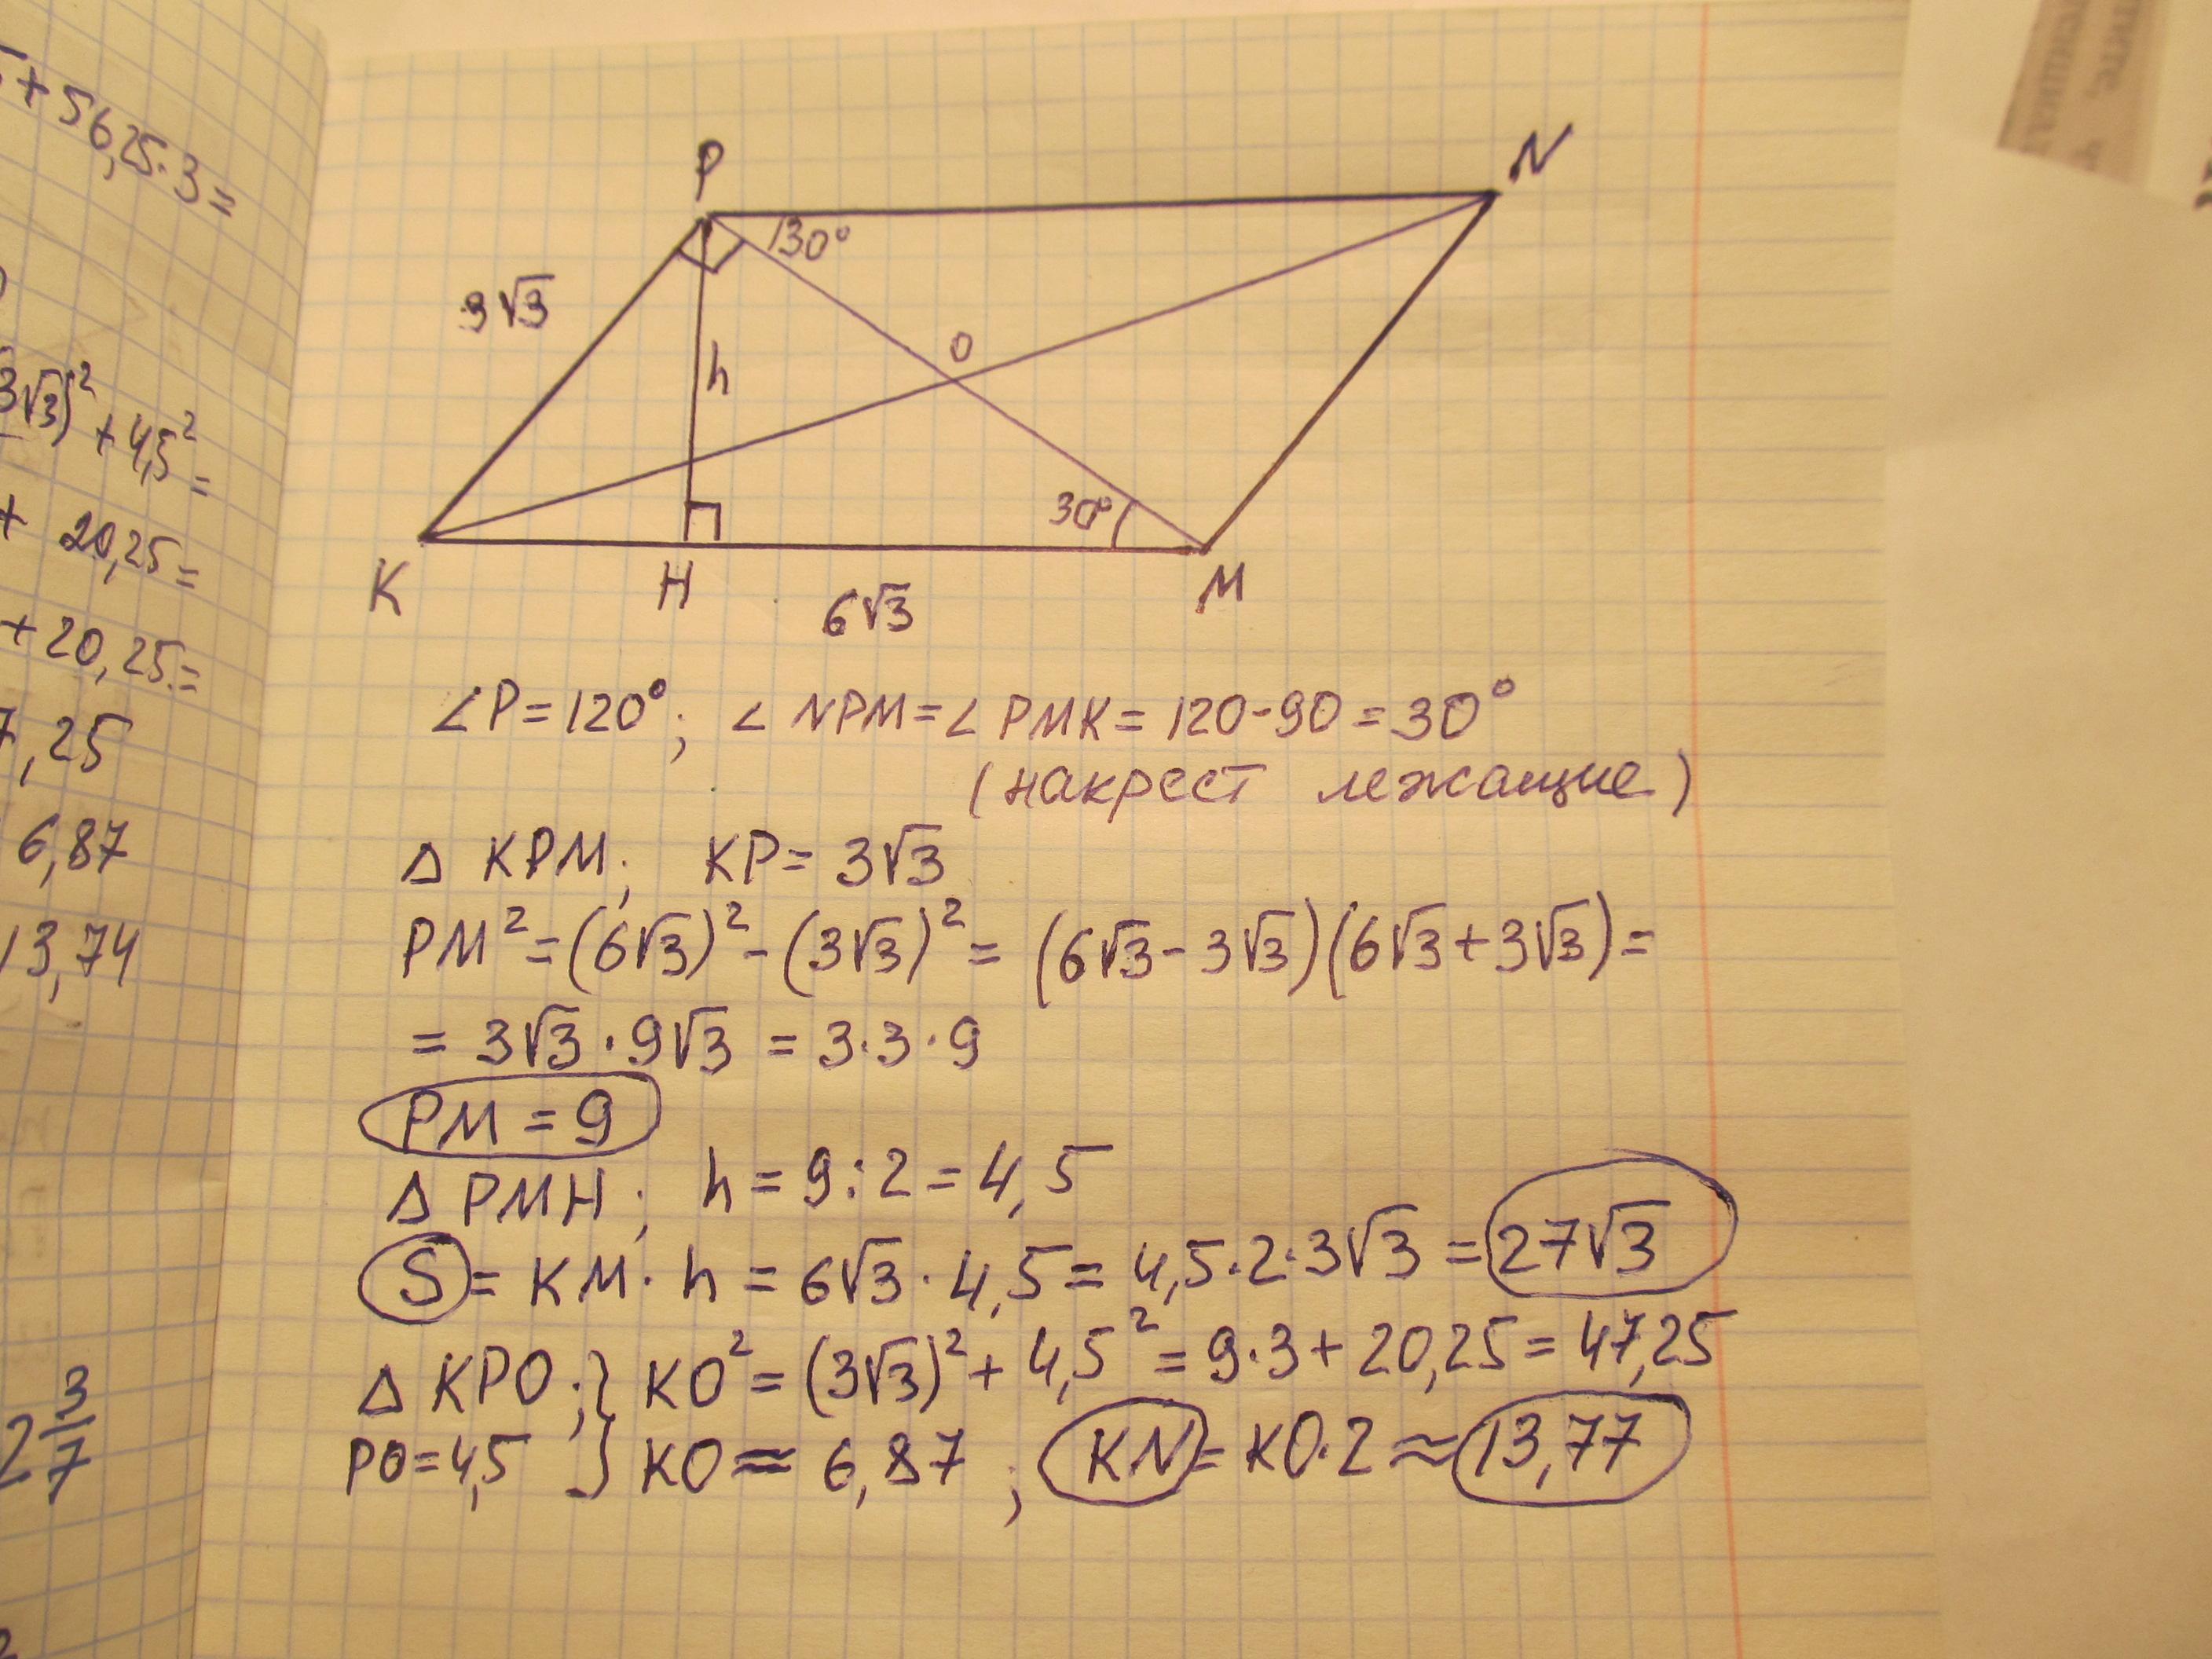 +56,25·3=
3√3)² + 4,5² =
+ 20,25=
+ 20,25=
7,25
6,87
13,74
2 3/7
P
N
30°
3√3
h
O
30°
K
H
M
6√3
∠P=120°; ∠NPM=∠PMK=120-90=30°
(накрест лежащие)
Δ KPM; KP= 3√3
PM²=(6√3)²-(3√3)²= (6√3-3√3)(6√3+3√3)=
= 3√3·9√3 = 3·3·9
PM = 9
Δ PMH; h = 9:2 = 4,5
S = KM·h = 6√3·4,5= 4,5·2·3√3 = 27√3
Δ KPO;} KO²=(3√3)²+4,5²=9·3+20,25=47,25
PO=4,5 } KO≈ 6,87 ; KN= KO·2 ≈ 13,77